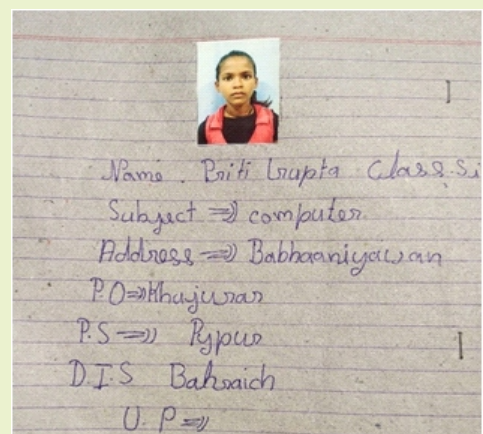 Name . Priti Gupta Class. Si
Subject ⇒)) computer.
Address ⇒)) Babhaaniyawan
P.O ⇒)) Khujurar
P.S ⇒)) Pypur
D.I.S Bahraich
U. P ⇒))